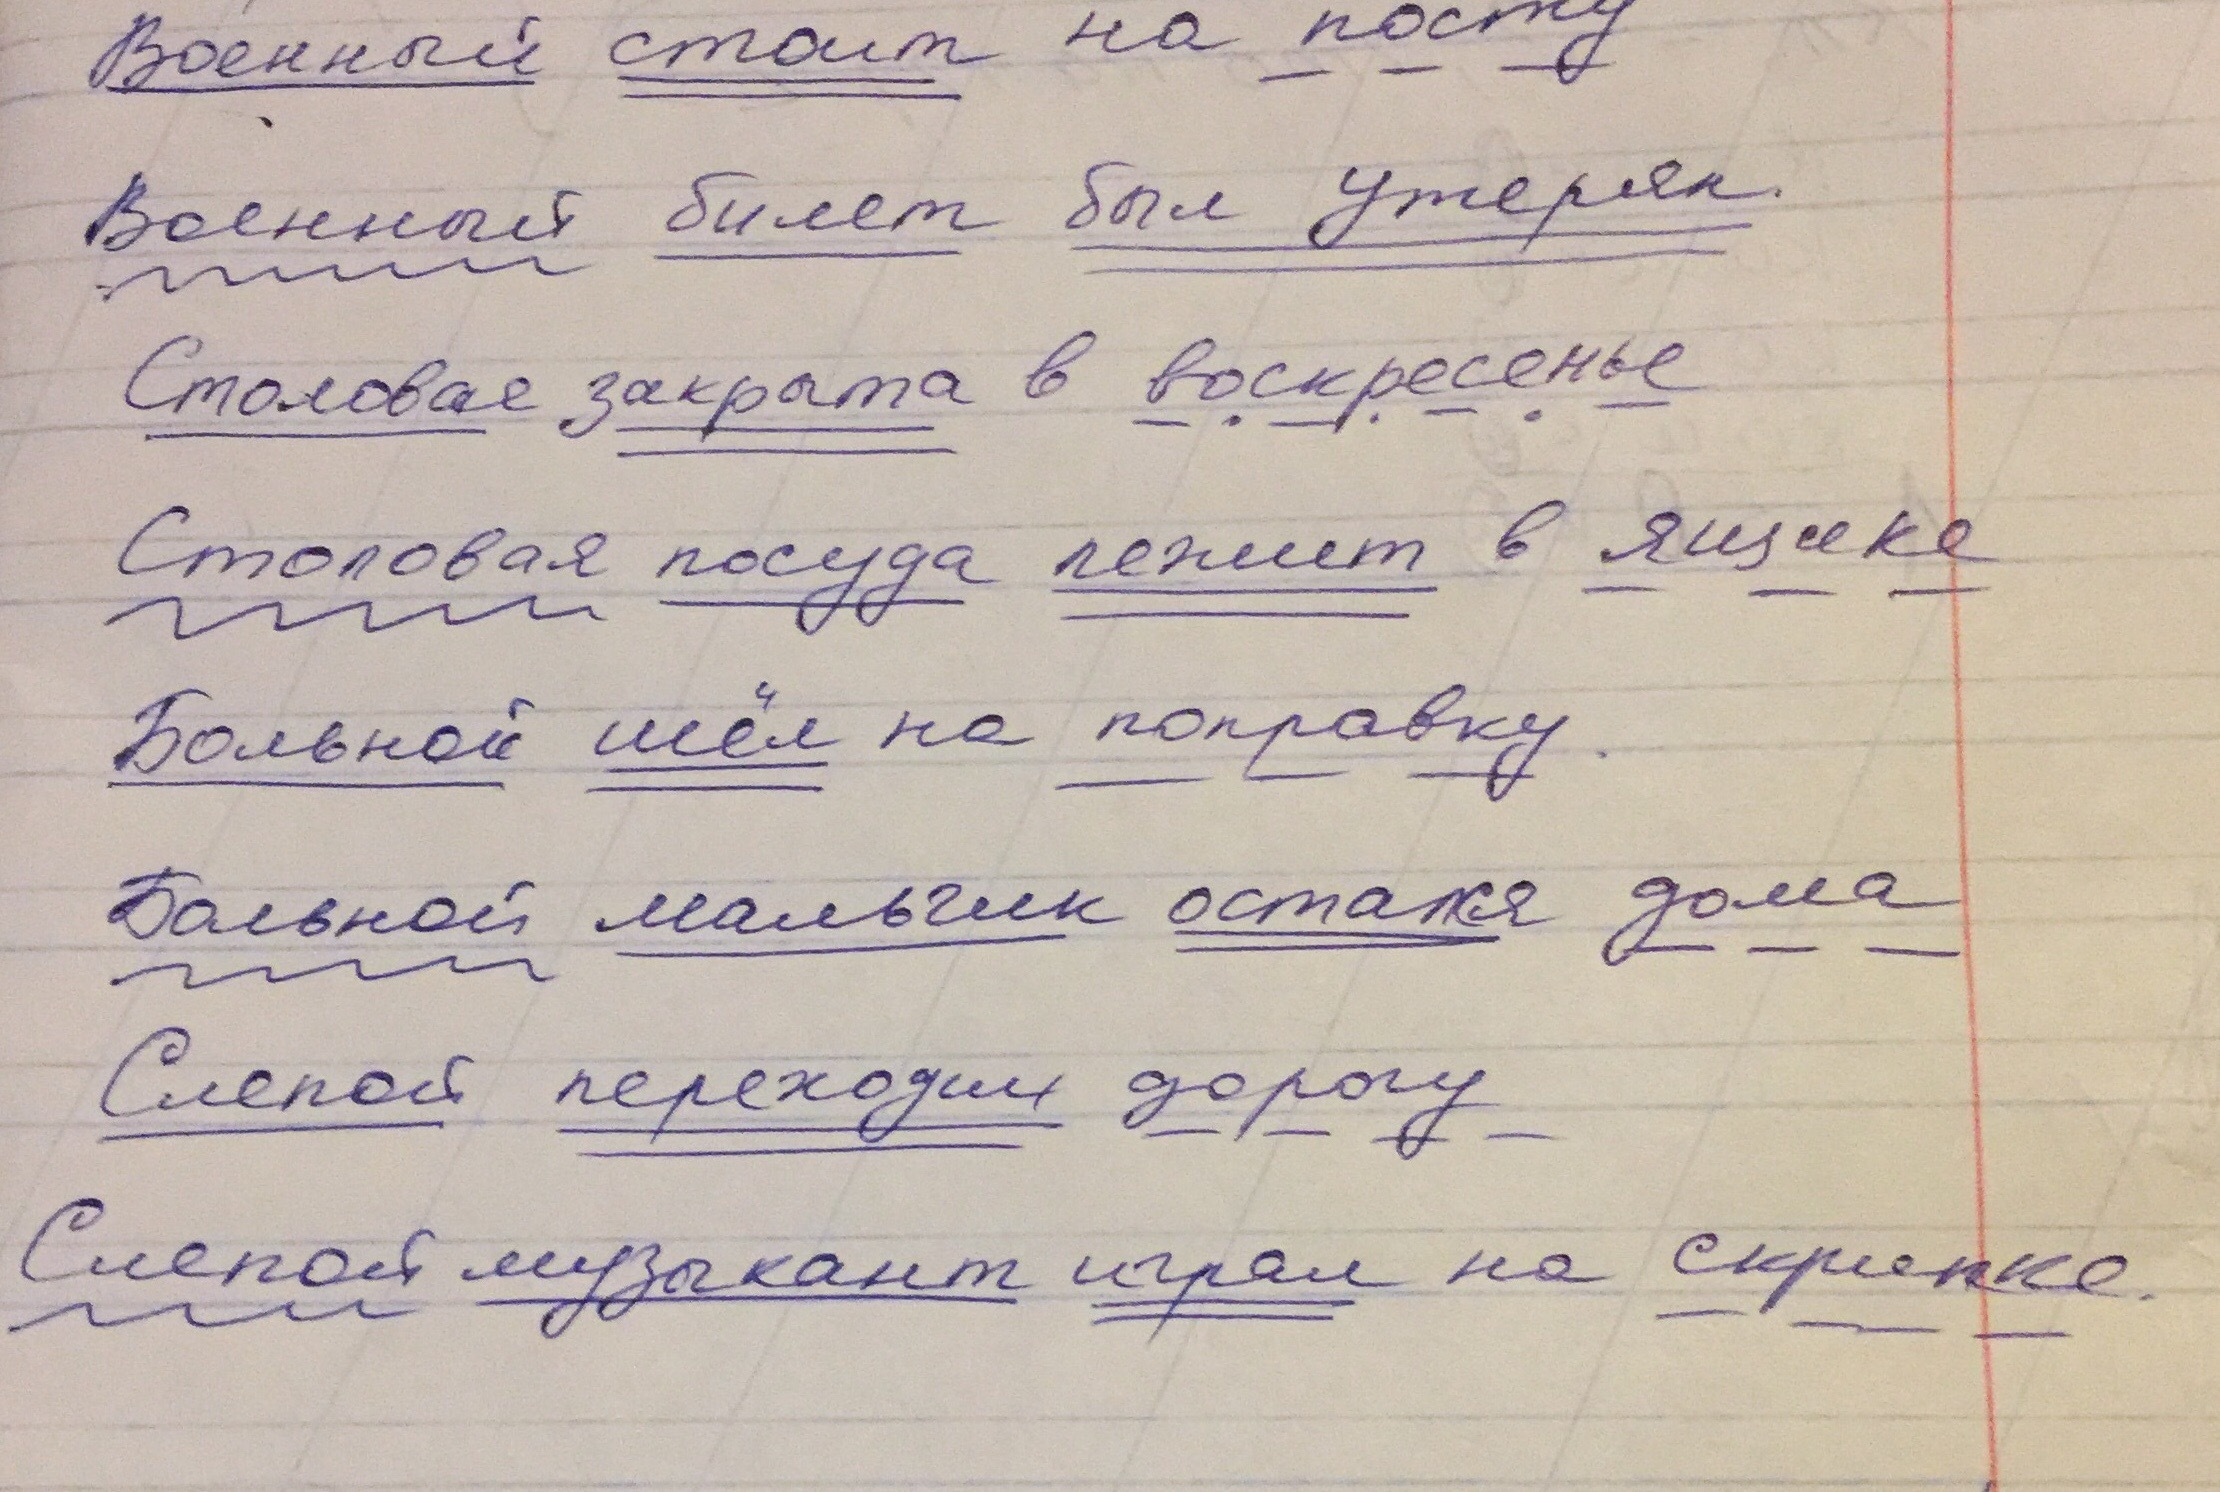 Военный стоит на посту
Военный билет был утерян.
Столовае закрыта в воскресенье
Столовая посуда лежит в ящике
Больной шёл на поправку.
Больной мальчик остался дома
Слепой переходил дорогу
Слепой музыкант играл на скрипке.